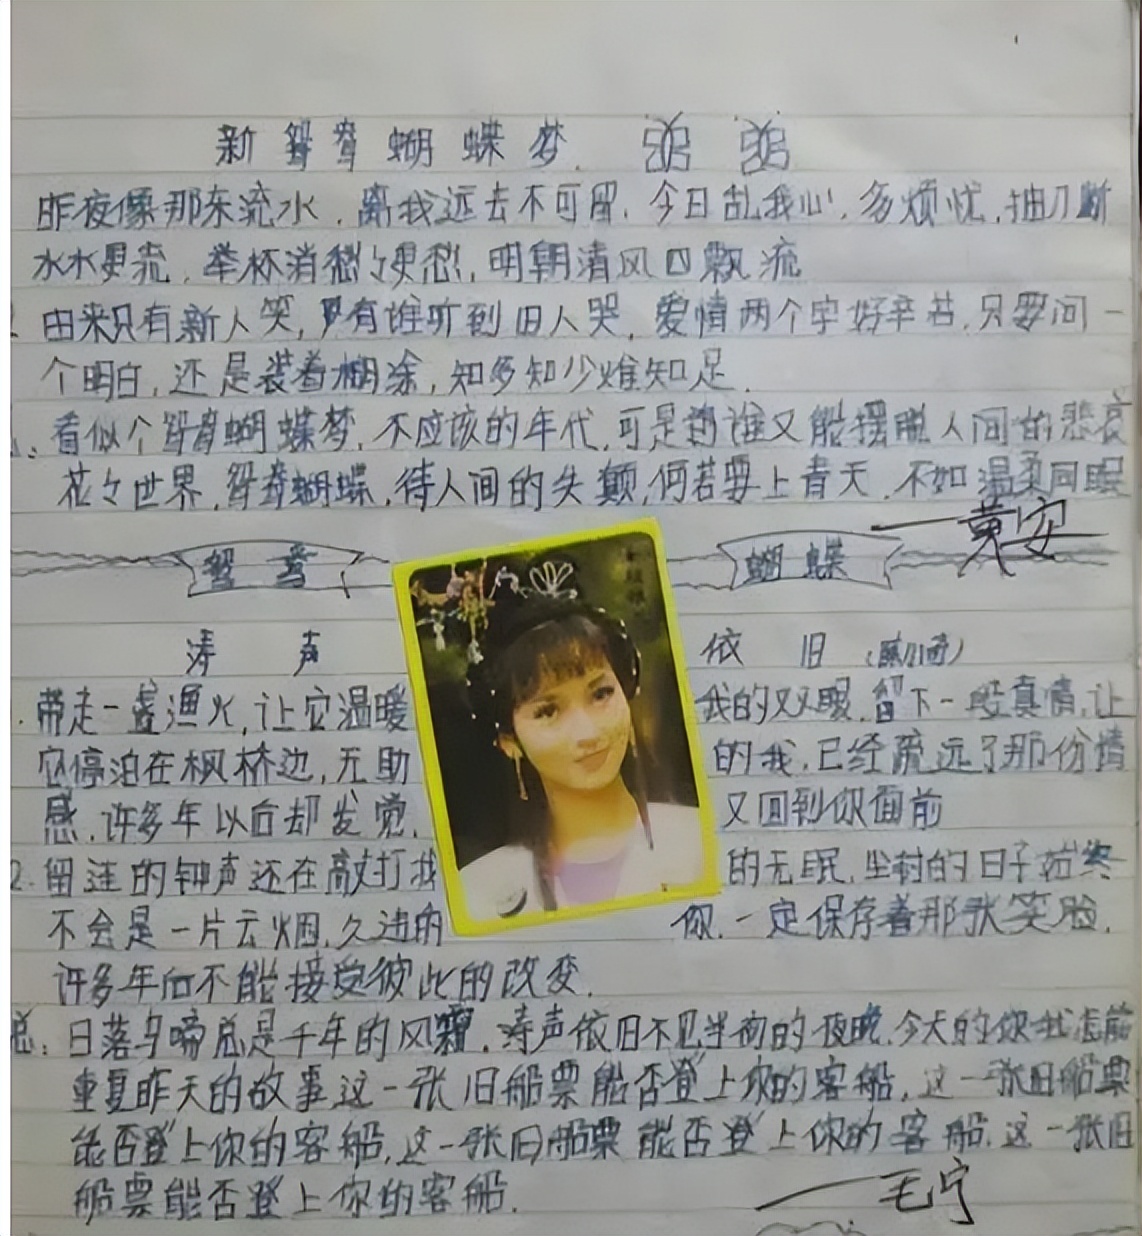 新鸳鸯蝴蝶梦
昨夜像那东流水，离我远去不可留，今日乱我心，多烦忧，抽刀断
水水更流，举杯消愁々更愁，明朝清风四飘流
由来只有新人笑，有谁听到旧人哭，爱情两个字好辛苦，只要问一
个明白，还是装着糊涂，知多知少难知足．
看似个鸳鸯蝴蝶梦，不应该的年代，可是谁又能摆脱人间的悲哀
花々世界，鸳鸯蝴蝶，待人间的失颠，何若要上青天，不如温柔同眠
——黄安
鸳鸯 蝴蝶
涛声 依旧
带走一盏渔火，让它温暖 我的双眼，留下一段真情，让
它停泊在枫桥边，无助 的我，已经疏远了那份情
感，许多年以后却发觉， 又回到你面前
2．留连的钟声还在敲打我 的无眠，尘封的日子始终
不会是一片云烟，久违的 你，一定保存着那张笑脸，
许多年后不能接受彼此的改变．
总：日落乌啼总是千年的风霜，涛声依旧不见当初的夜晚，今天的你我怎能
重复昨天的故事这一张旧船票能否登上你的客船，这一张旧船票
能否登上你的客船，这一张旧船票能否登上你的客船，这一张旧
船票能否登上你的客船．
——毛宁